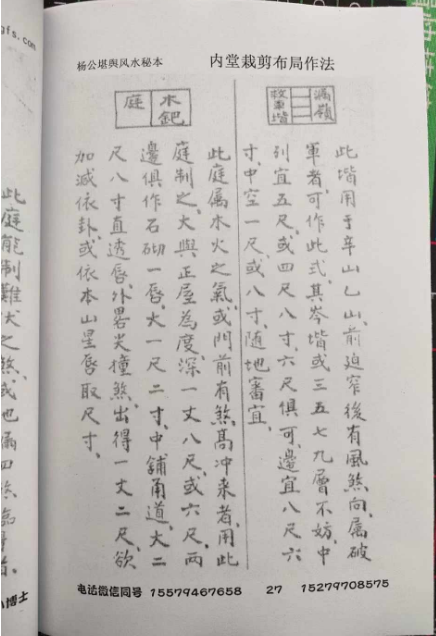 杨公堪與风水秘本 内堂裁剪布局作法
漏嶺
救車堦
此堦用于辛山乙山前迫窄後有風煞向屬破
軍者可作此式其岑堦或三五七九層不妨中
列宜五尺或四尺八寸六尺俱可邊宜八尺六
寸中空一尺或八寸随地審宜
木鈀
庭
此庭属木火之氣或門前有煞高冲来者用此
庭制之大與正屋為度深一丈八尺或六尺两
邊俱作石砌一唇大一尺二寸中鋪甬道大二
尺八寸直透唇外畧尖撞煞出得一丈二尺欲
加减依卦或依本山星唇取尺寸
此庭能制難犬之煞或也
gfs.com
小博士
电话微信同号 15579467658 27 15279708575